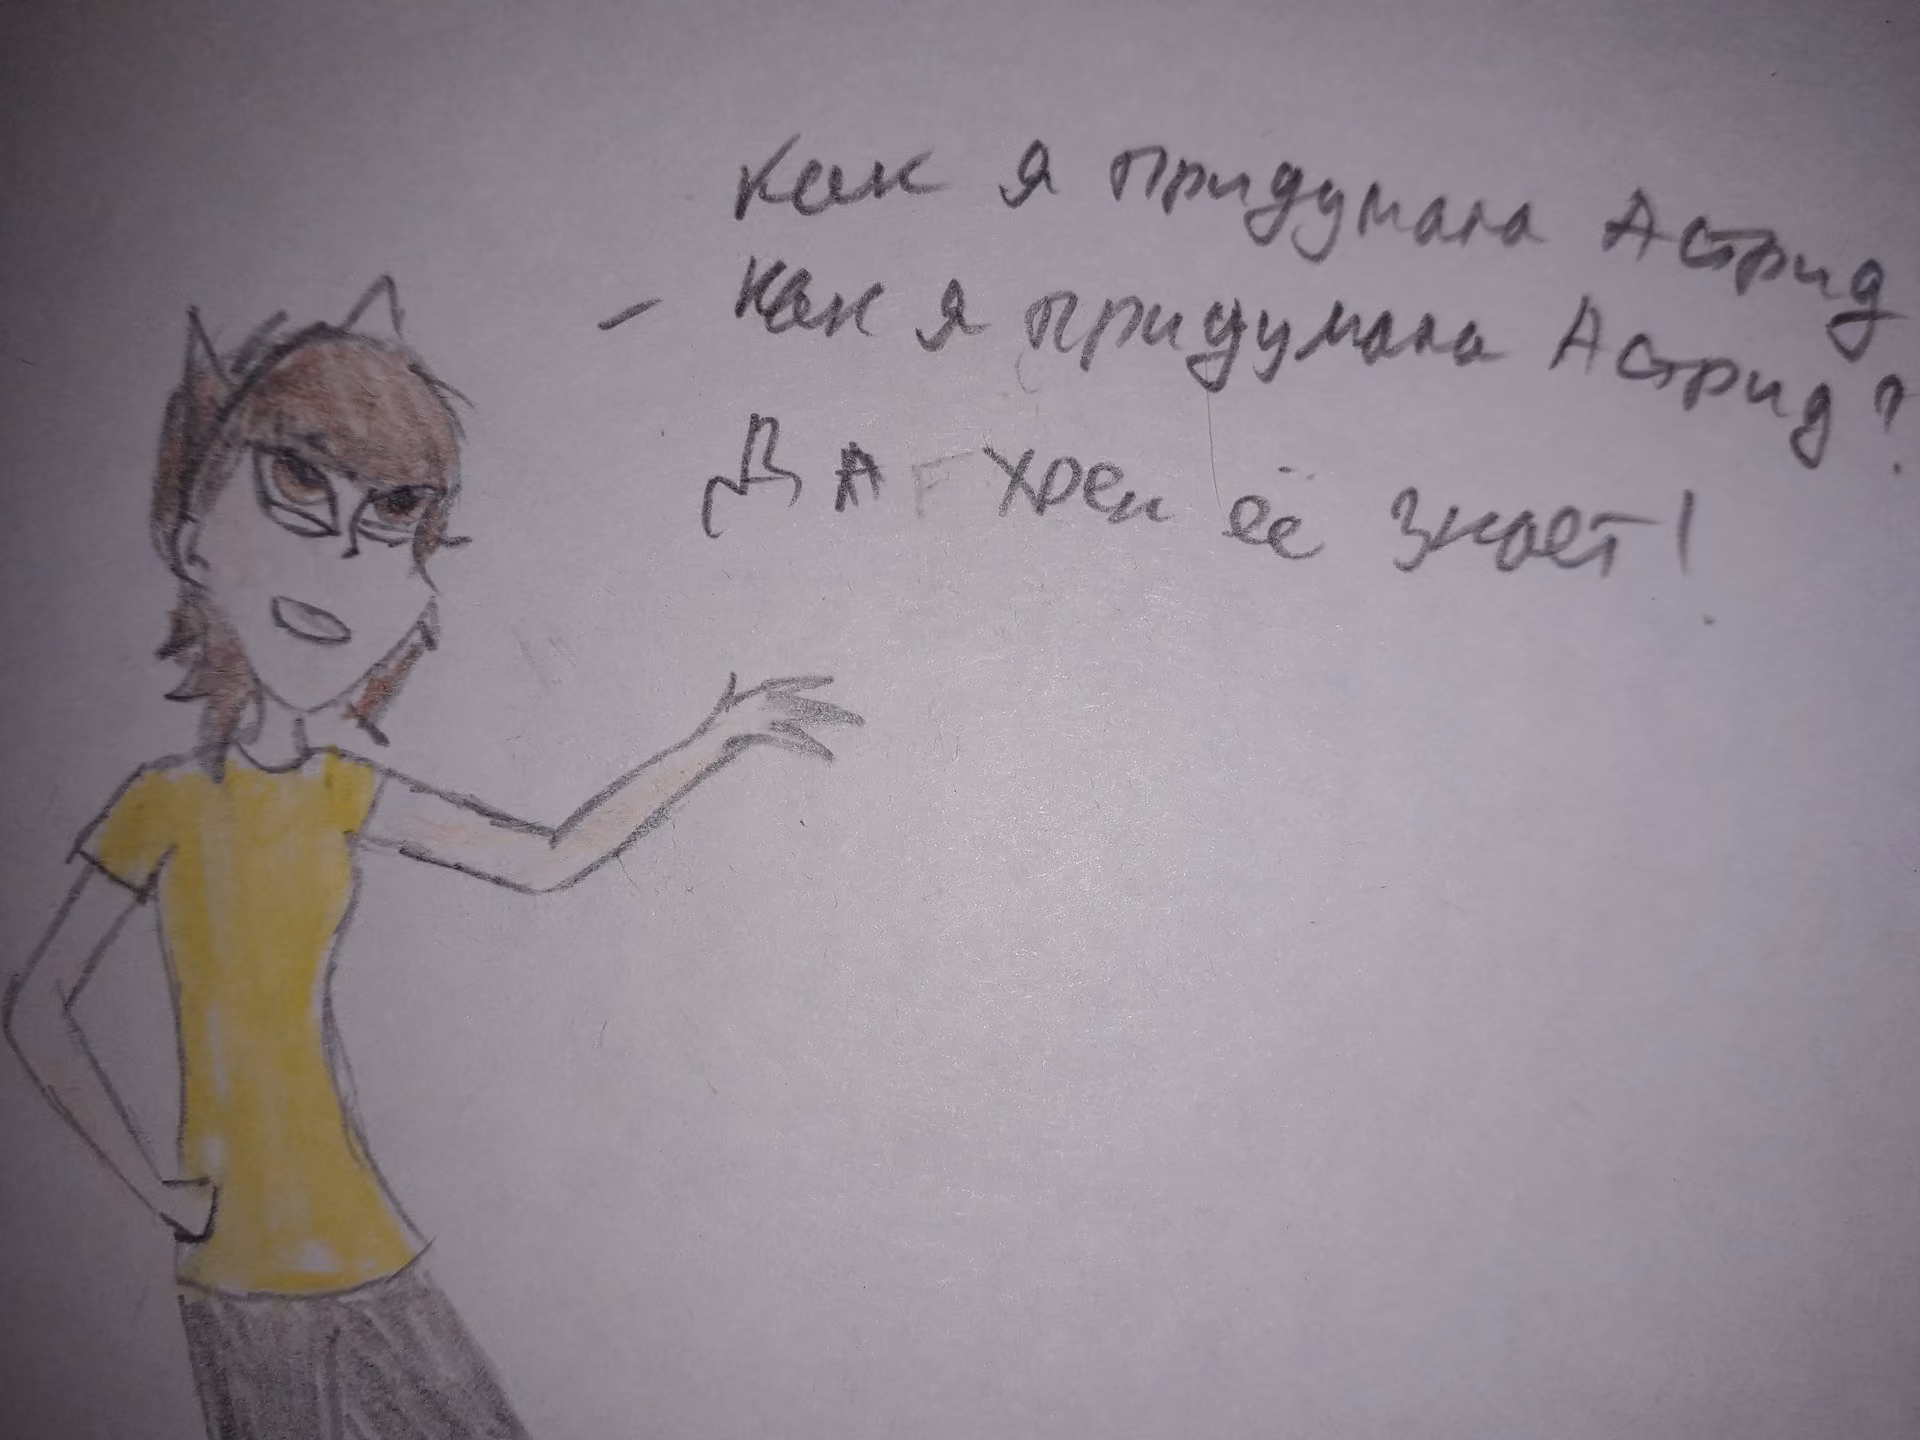 Как я придумала Астрид
- Как я придумала Астрид?
ДА хрен её знает!